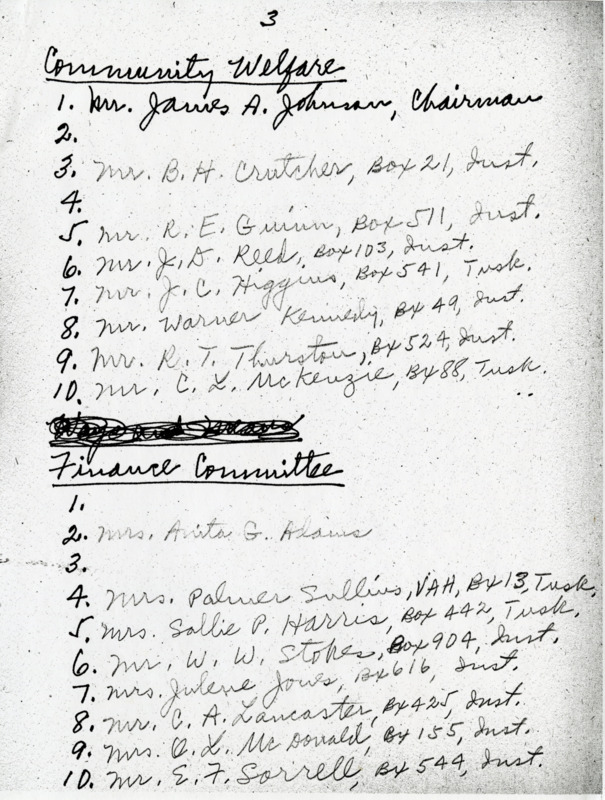 3
Community Welfare
1. Mr. James A. Johnson, Chairman
2.
3. Mr. B. H. Crutcher, Box 21, Inst.
4.
5. Mr. R. E. Guinn, Box 511, Inst.
6. Mr. J. D. Reed, Box 103, Inst.
7. Mr. J. C. Higgins, Box 541, Tusk.
8. Mr. Warner Kennedy, Bx 49, Inst.
9. Mr. R. T. Thurston, Bx 524, Inst.
10. Mr. C. L. McKenzie, Bx 88, Tusk.
Ways and Means
Finance Committee
1.
2. Mrs. Anita G. Adams
3.
4. Mrs. Palmer Sullins, VAH, Bx 13, Tusk.
5. Mrs. Sallie P. Harris, Box 442, Tusk.
6. Mr. W. W. Stokes, Box 904, Inst.
7. Mrs. Julene Jones, Bx 616, Inst.
8. Mr. C. A. Lancaster, Bx 425, Inst.
9. Mrs. O. L. McDonald, Bx 155, Inst.
10. Mr. E. F. Sorrell, Bx 544, Inst.